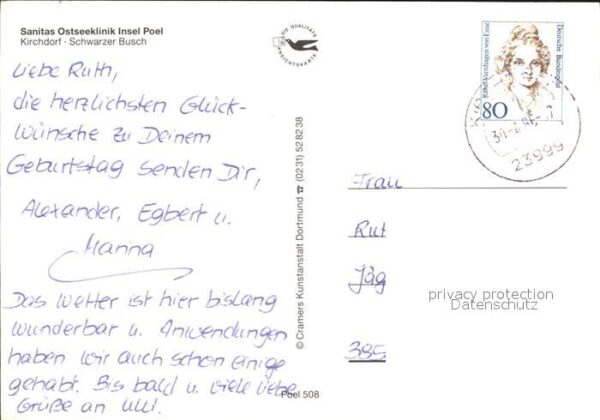 Sanitas Ostseeklinik Insel Poel
Kirchdorf · Schwarzer Busch
Liebe Ruth,
die herzlichsten Glück-
wünsche zu Deinem
Geburtstag senden Dir,
Alexander, Egbert u.
Hanna
Das Wetter ist hier bislang
wunderbar u. Anwendungen
haben wir auch schon einige
gehabt. Bis bald u. viele liebe
Grüße an Ulli.
DIE QUALITÄTS
ANSICHTSKARTE
© Cramers Kunstanstalt Dortmund ☎ (0231) 528238
Poel 508
Rahel Varnhagen von Ense
Deutsche Bundespost
80
23999
Frau
Rut
Jäg
385
privacy protection
Datenschutz